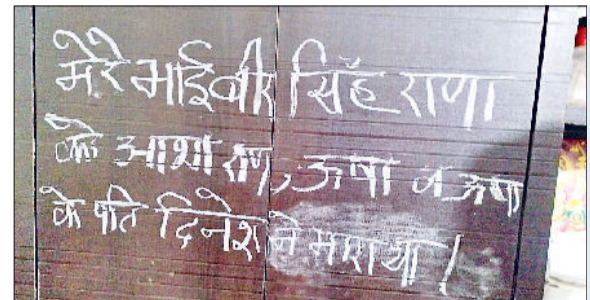 मेरे भाई वीर सिंह राणा
को आशा राणा, ऊषा व ऊषा
के पति दिनेश ने मरवाया।